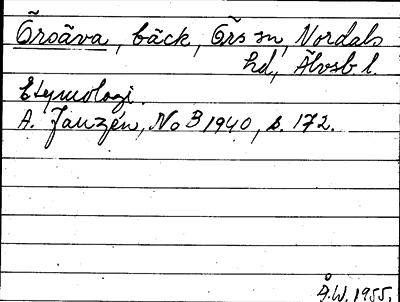 Örsåva, bäck, Örs sn, Nordals
hd, Älvsb l.
Etymologi.
A. Janzén, No B 1940, s. 172.
Å.W. 1955.